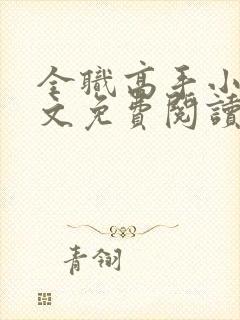 全職高手小
文免費閱讀
青翎